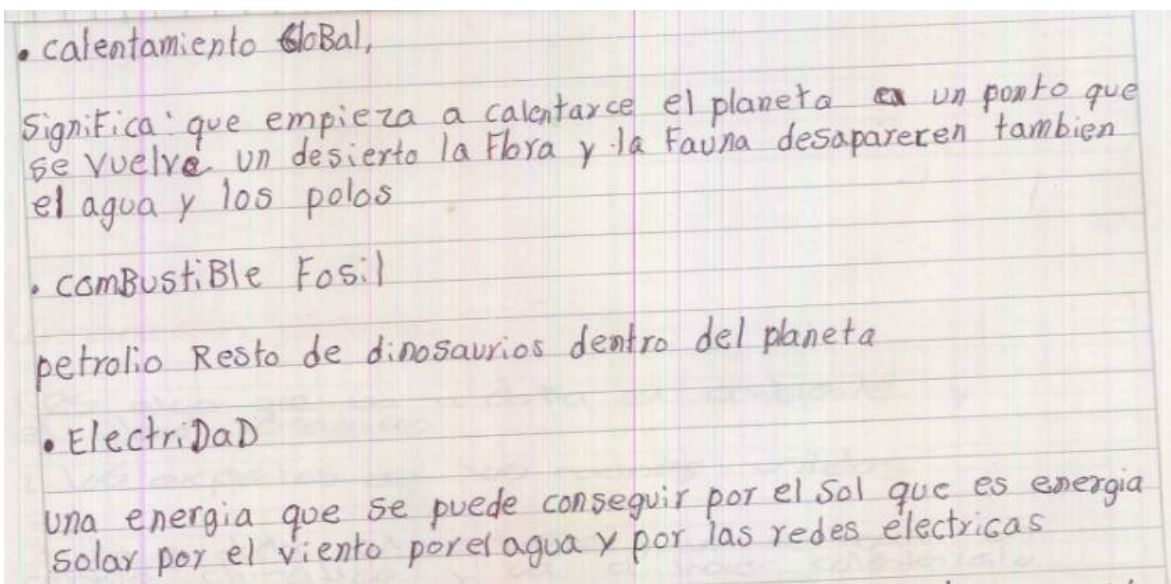 • calentamiento GloBal,
Significa: que empieza a calentarce el planeta a un ponto que
se vuelve un desierto la Flora y la Fauna desaparecen tambien
el agua y los polos
• comBustiBle Fosil
petrolio Resto de dinosaurios dentro del planeta
• ElectriDaD
una energia que se puede conseguir por el Sol que es energia
solar por el viento por el agua y por las redes electricas